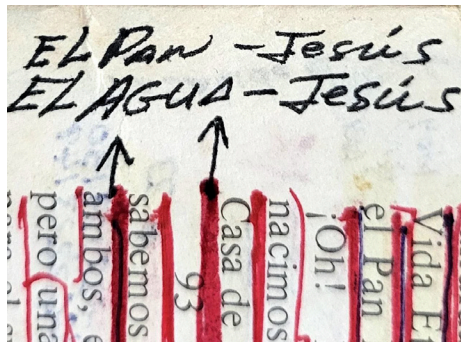 EL Pan - Jesús
EL AGUA - Jesús
Vida
el Pan
¡Oh!
nacimos
Casa de
93
sabemos
ambos,
pero una